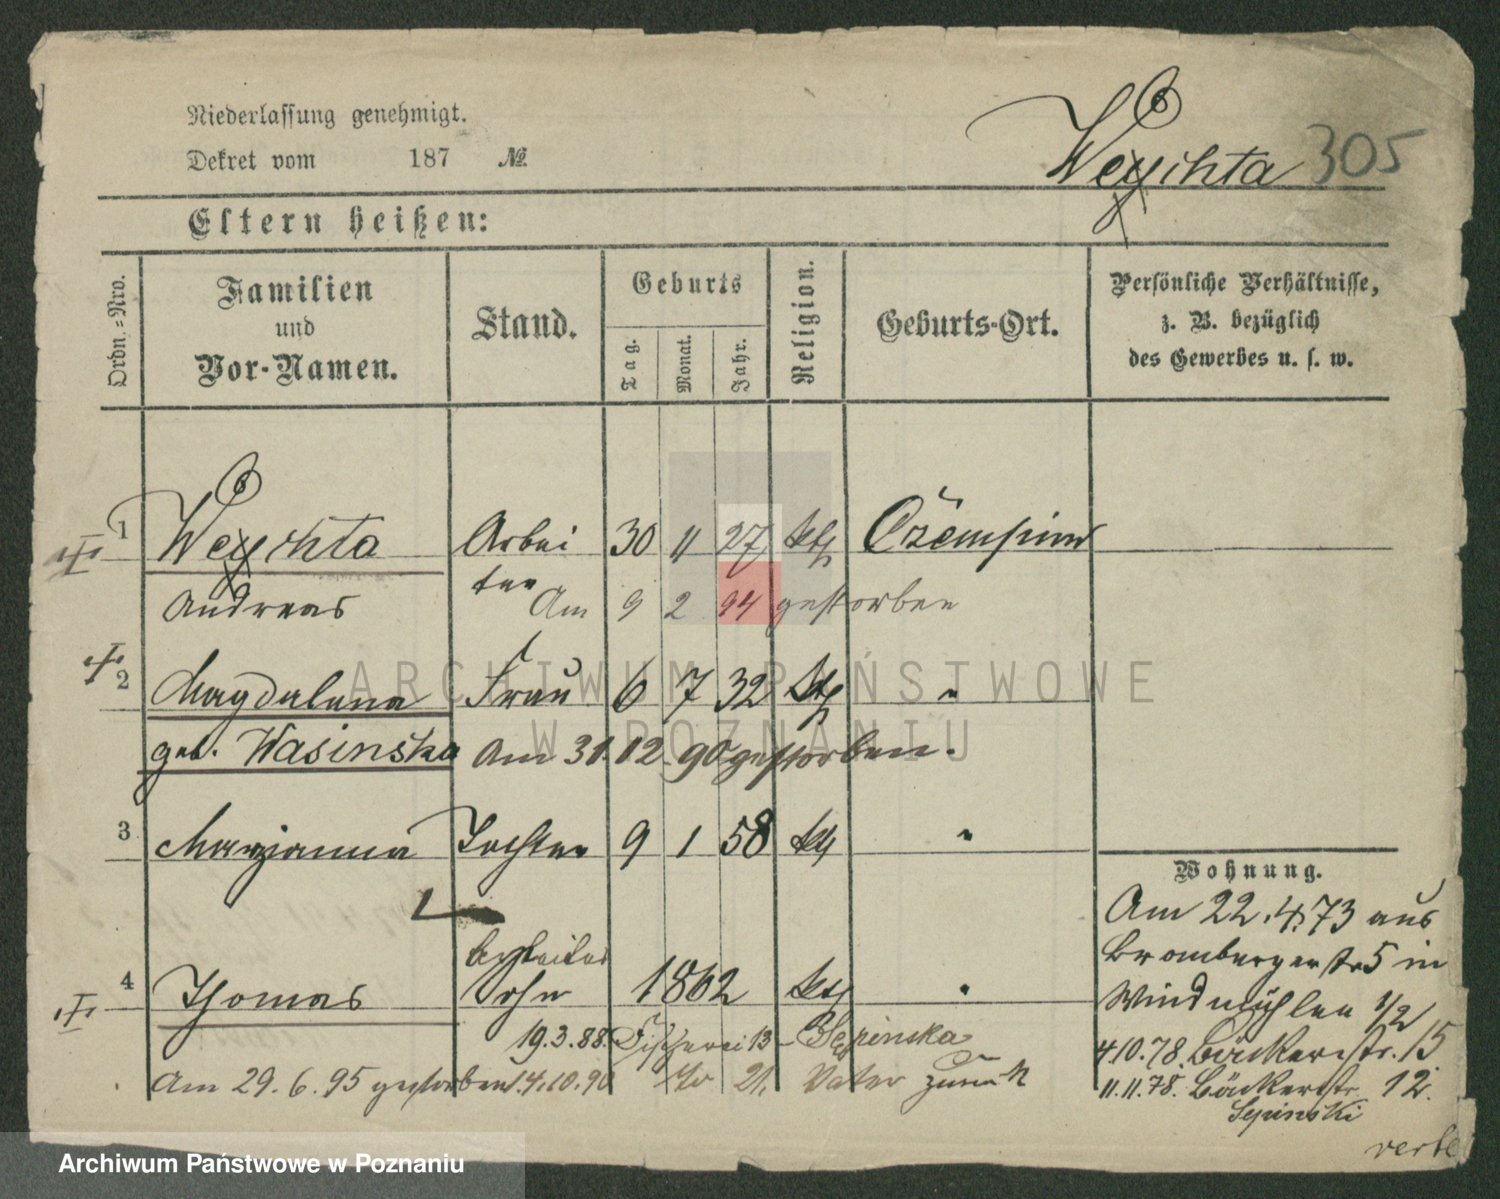 Niederlassung genehmigt.
Dekret vom 187 №
Weychta 305
Eltern heißen:
Ordn.=Nro.
Familien und Vor-Namen.
Stand.
Geburts
Tag.
Monat.
Jahr.
Religion.
Geburts-Ort.
Persönliche Verhältnisse, z. B. bezüglich des Gewerbes u. s. w.
1 Arbei 30 11 27 kth
Andreas ter Am 9 2 94 gestorben
2 Magdalena Frau 6 7 32 kth "
geb. Wasinska Am 31.12.90 gestorben.
3 Maryanna Tochter 9 1 58 kth "
4 Thomas Sohn 1862 kth "
19.3.88. Fischerei 13
Am 29.6.95 gestorben 14.10.90 No 21. Vater zurück
Wohnung.
Am 22.4.73 aus
Brombergerstr 5 in
Windmühlen 1/2
4.10.78. Bäckerstr. 15
11.11.78. Bäckerstr 12.
ARCHIWUM PAŃSTWOWE
W POZNANIU
Archiwum Państwowe w Poznaniu